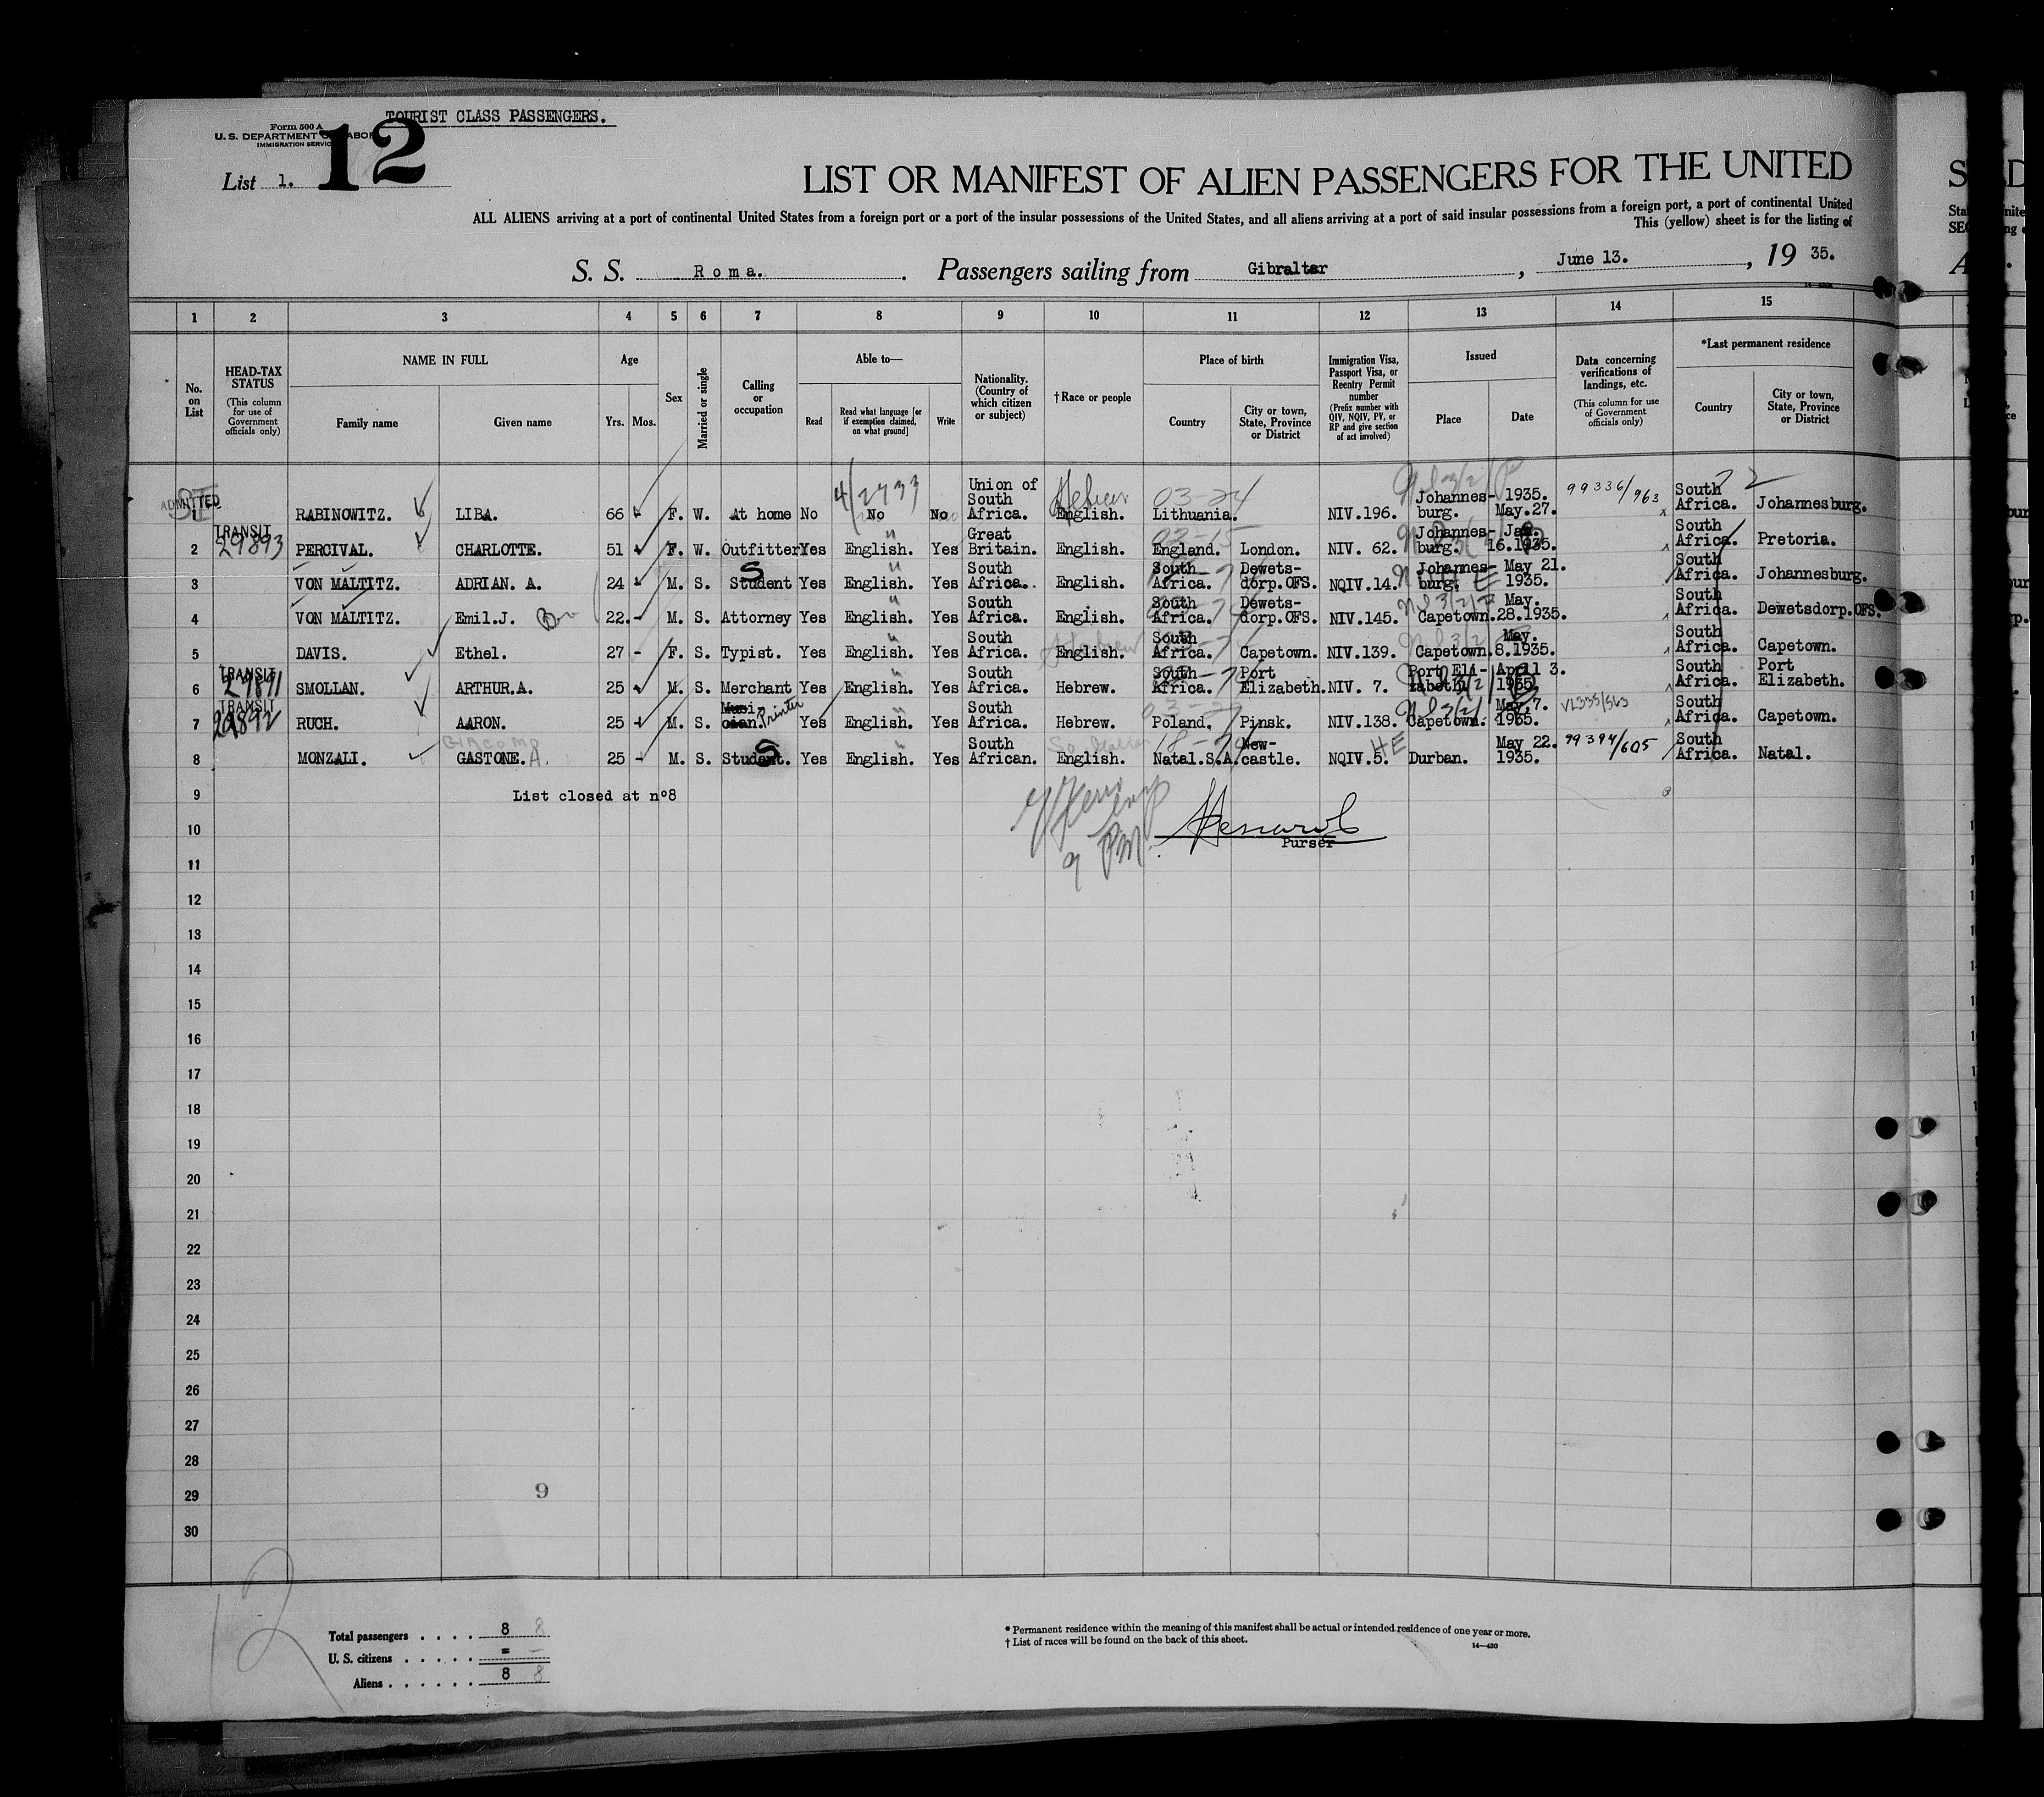 TOURIST CLASS PASSENGERS.
Form 500 A
U. S. DEPARTMENT OF LABOR
IMMIGRATION SERVICE
List 1. 12
LIST OR MANIFEST OF ALIEN PASSENGERS FOR THE UNITED
ALL ALIENS arriving at a port of continental United States from a foreign port or a port of the insular possessions of the United States, and all aliens arriving at a port of said insular possessions from a foreign port, a port of continental United
This (yellow) sheet is for the listing of
S. S. Roma. Passengers sailing from Gibraltar, June 13., 19 35.
1 2 3 4 5 6 7 8 9 10 11 12 13 14 15
No. on List
HEAD-TAX STATUS (This column for use of Government officials only)
NAME IN FULL
Family name Given name
Age
Yrs. Mos.
Sex
Married or single
Calling or occupation
Able to—
Read Read what language [or if exemption claimed, on what ground] Write
Nationality. (Country of which citizen or subject)
†Race or people
Place of birth
Country City or town, State, Province or District
Immigration Visa, Passport Visa, or Reentry Permit number (Prefix number with QIV, NQIV, PV, or RP and give section of act involved)
Issued
Place Date
Data concerning verifications of landings, etc. (This column for use of Government officials only)
*Last permanent residence
Country City or town, State, Province or District
ADMITTED 1 RABINOWITZ. LIBA. 66 - F. W. At home No No No Union of South Africa. Hebrew English. 03-24 Lithuania. NIV.196. Johannes-burg. 1935. May.27. 99336/963 South Africa. Johannesburg.
2 TRANSIT 29893 PERCIVAL. CHARLOTTE. 51 F. W. Outfitter Yes English. Yes Great Britain. England. London. NIV. 62. Johannes-burg. Jan. 16.1935. South Africa. Pretoria.
3 VON MALTITZ. ADRIAN. A. 24 M. S. Student S Yes English. Yes South Africa. English. South Africa. Dewets-dorp.OFS. NQIV.14. Johannes-burg. May 21. 1935. South Africa. Johannesburg.
4 VON MALTITZ. Emil.J. 22.- M. S. Attorney Yes English. Yes South Africa. English. South Africa. Dewets-dorp.OFS. NIV.145. Capetown. May. 28.1935. South Africa. Dewetsdorp.OFS.
5 DAVIS. Ethel. 27 - F. S. Typist. Yes English. Yes South Africa. English. South Africa. Capetown. NIV.139. Capetown. May. 8.1935. South Africa. Capetown.
6 TRANSIT 29891 SMOLLAN. ARTHUR.A. 25 M. S. Merchant Yes English. Yes South Africa. Hebrew. South Africa. Port Elizabeth. NIV. 7. Port Eli-zabeth April 3. 1935. South Africa. Port Elizabeth.
7 TRANSIT 29892 RUCH. AARON. 25 - M. S. Musi-cian. Printer Yes English. Yes South Africa. Hebrew. Poland. Pinsk. NIV.138. Capetown. May.7. 1935. South Africa. Capetown.
8 MONZALI. GIACOMO GASTONE. A. 25 - M. S. Student. S Yes English. Yes South African. English. Natal.S.A. New-castle. NQIV.5. HE Durban. May 22. 1935. 99394/605 South Africa. Natal.
9 List closed at n°8
10
Purser
11
12
13
14
15
16
17
18
19
20
21
22
23
24
25
26
27
28
29 9
30
12
Total passengers . . . . 8 8
U. S. citizens . . . . . = -
Aliens . . . . . . 8 8
* Permanent residence within the meaning of this manifest shall be actual or intended residence of one year or more.
† List of races will be found on the back of this sheet.
14—430